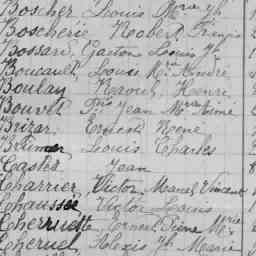 Boscher Louis Marie Jh
Boscherie Robert François
Bossard Gaston Louis Jh
Boucault Louis Mie André
Boulay Raoul Henri
Bouvet Fois Jean Mie Aimé
Brizar Ernest René
Louis Charles
Castex Jean
Charrier Victor Marcel Vincent
Chaussée Victor Louis
Cherruette Ernest Pierre Mie
Cheruel Alexis Jh Marie